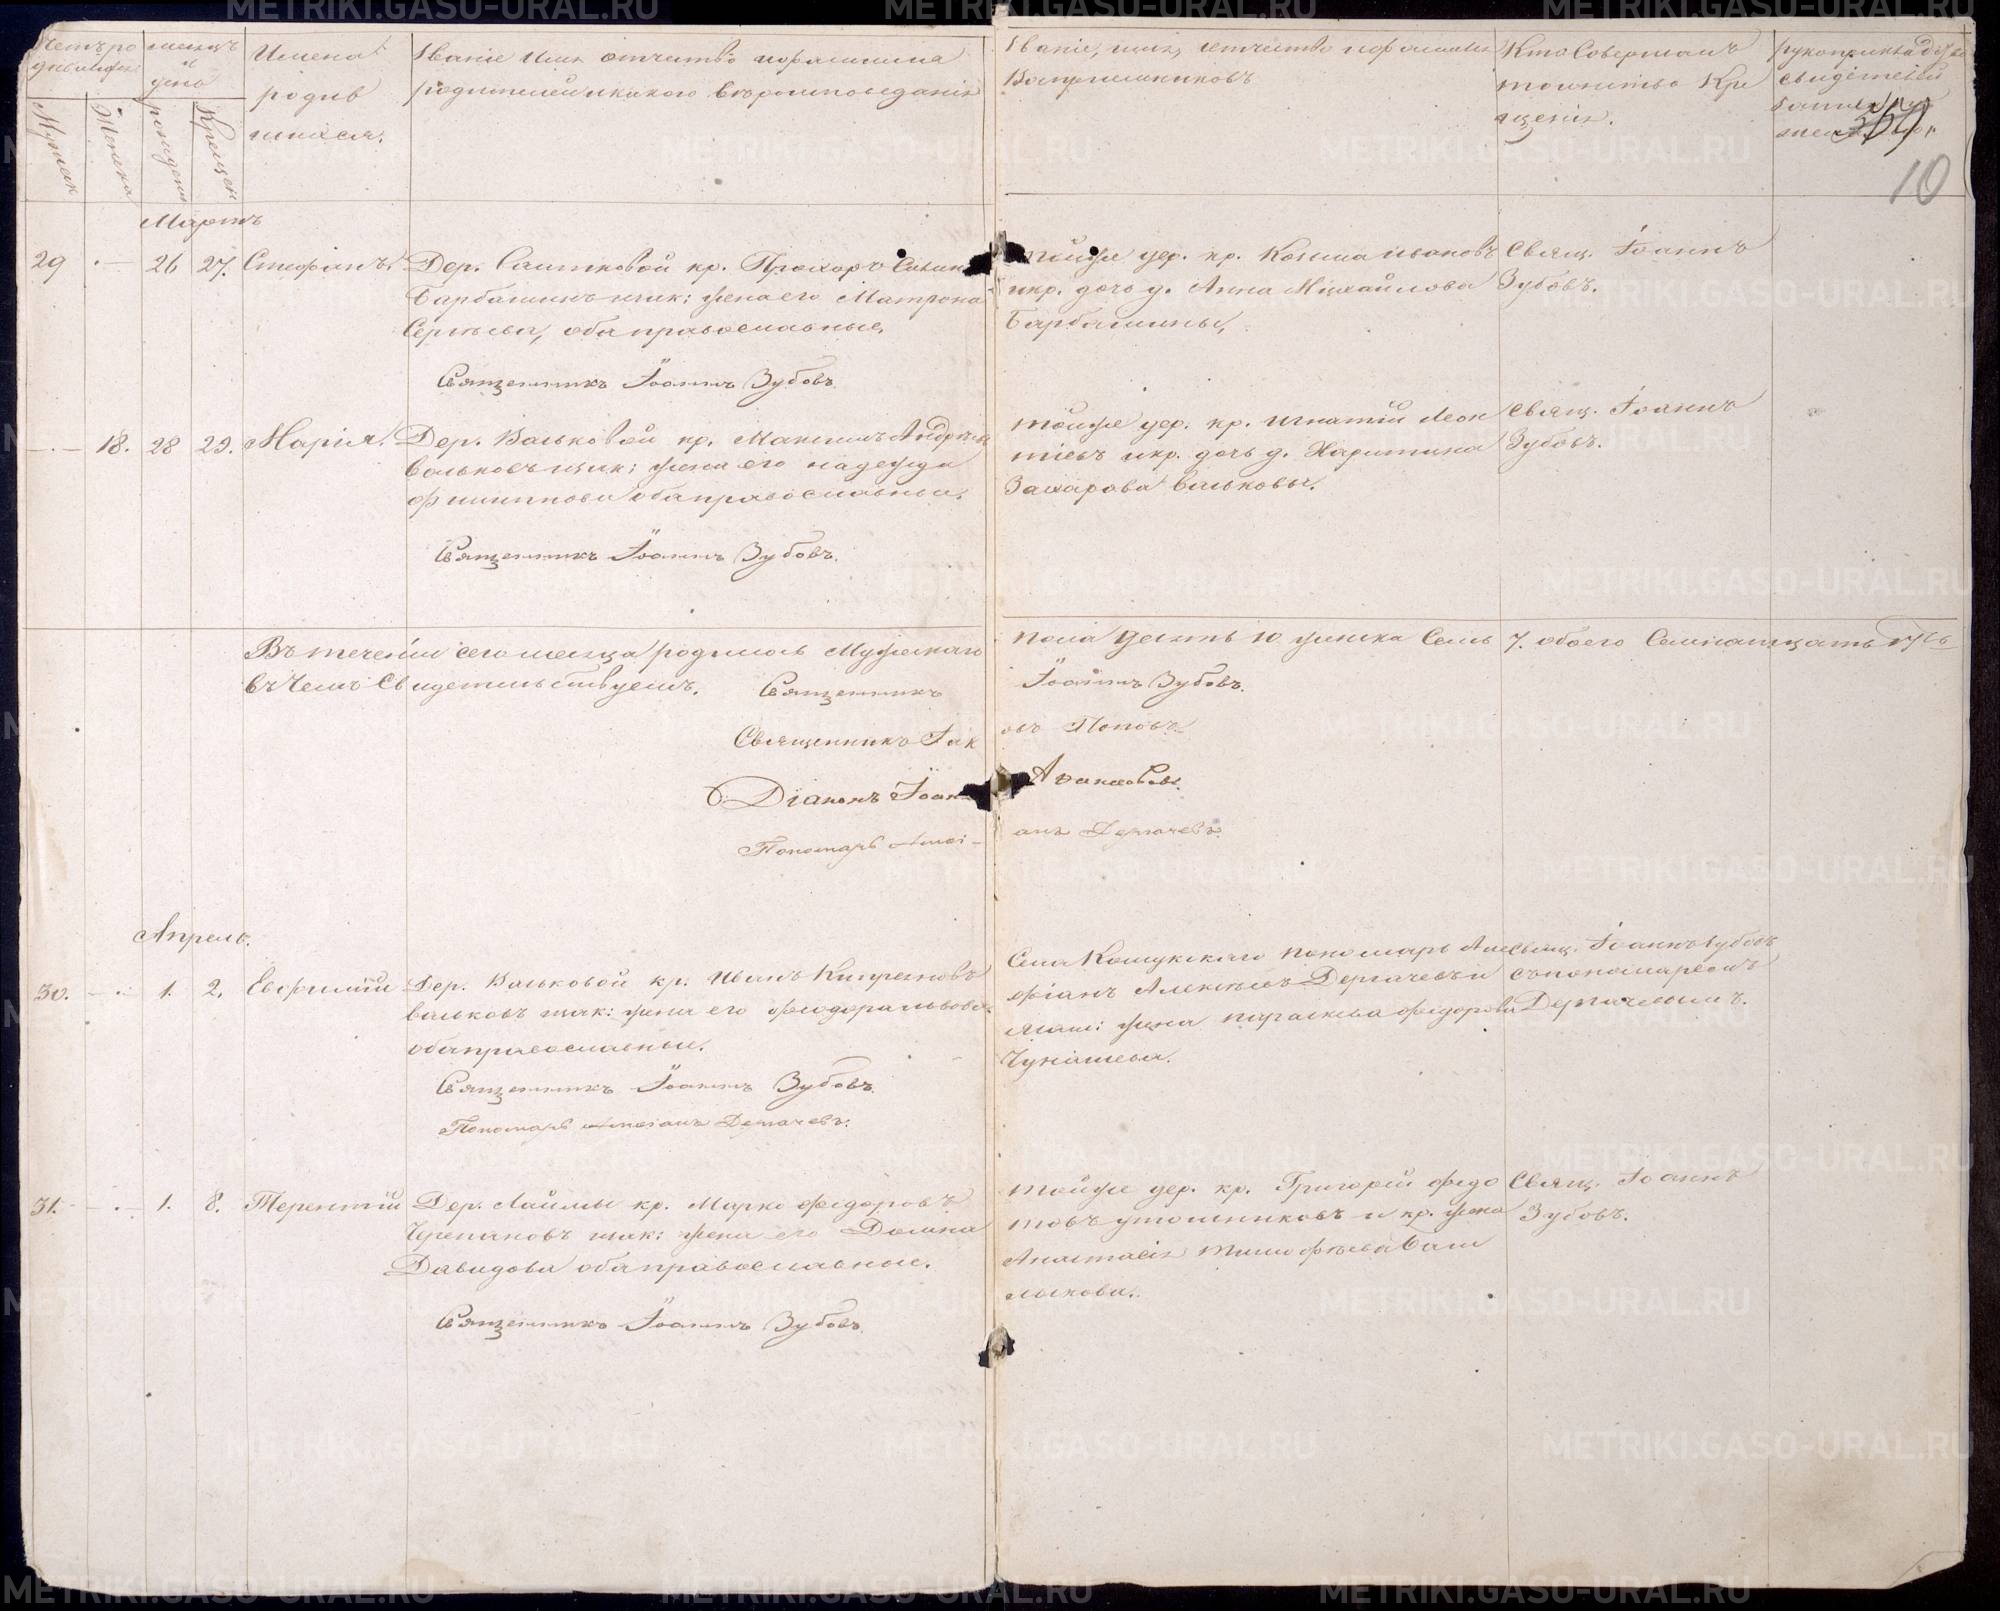 Счетъ ро
дившихся
месяцъ
и
день
Имена
родив
шихся.
Званіе имя отчество и фамилия
родителей и какого вѣроисповеданія
Званіе, имя, отчество и фамилия
Восприемниковъ
Кто Совершалъ
таинство Кре
щенія.
рукоприкладство
свидетелей
Мужск
Женска
рожденія
Крещен
10
Мартъ
29 26 27. Стефанъ. Дер. Сашковой кр. Прохоръ
Барбашинъ и зак: жена его Матрона
Сергѣева, оба православные,
Священникъ Іоаннъ Зубовъ
тойже дер. кр. Козма Ивановъ
и кр. дочь д. Анна Михайлова
Барбашины,
Свящ. Іоаннъ
Зубовъ.
18. 28 29. Марія. Дер. Вальковой кр. Максимъ Андреевъ
Вальковъ и зак: жена его надежда
филиппова оба православные.
Священникъ Іоаннъ Зубовъ.
тойже дер. кр. Игнатій Леон
тіевъ и кр. дочь д. Харитина
Захарова Вальковы.
Свящ. Іоаннъ
Зубовъ.
Въ теченіи сего месяца родилось Мужескаго пола десять 10 женска Семь 7. обоего Семнатцать 17
въ Чемъ Свидетельствуемъ. Священникъ Іоаннъ Зубовъ.
Священникъ Іаковъ Поповъ
Діаконъ Іоан
Пономарь Дергачевъ
Апрель.
30. 1. 2. Евфимій Дер. Вальковой кр. Иванъ Киприяновъ
Вальковъ и зак: жена его феодора Львова
оба православные.
Священникъ Іоаннъ Зубовъ.
Пономарь Дергачевъ.
Села Кошукскаго пономарь
Алексѣевъ Дергачевъ и
жена параскева федорова
Свящ. Іоаннъ Зубовъ
с пономаремъ
Дергачевымъ.
31. 1. 8. Терентій Дер. Лаймы кр. Марко федоровъ
Черепановъ и зак: жена его Домна
Давидова оба православные.
Священникъ Іоаннъ Зубовъ.
тойже дер. кр. Григорей федо
товъ и кр. жена
Анастасія тимофѣева
Свящ. Іоаннъ
Зубовъ.
METRIKI.GASO-URAL.RU